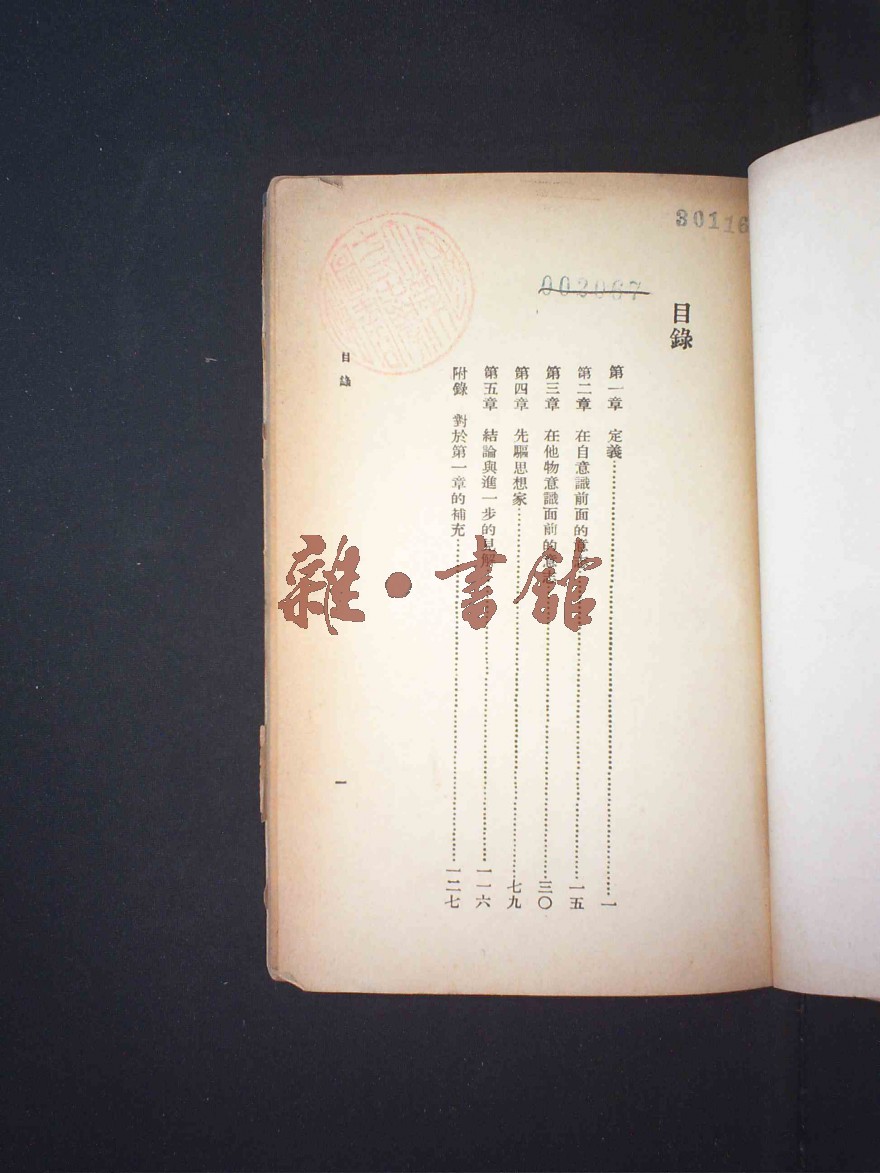 30116
002067
目錄
第一章 定義……一
第二章 在自意識前面的意志……一五
第三章 在他物意識面前的意志……三〇
第四章 先驅思想家……七九
第五章 結論與進一步的見解……一一六
附錄 對於第一章的補充……一二七
目錄
一
雜·書館